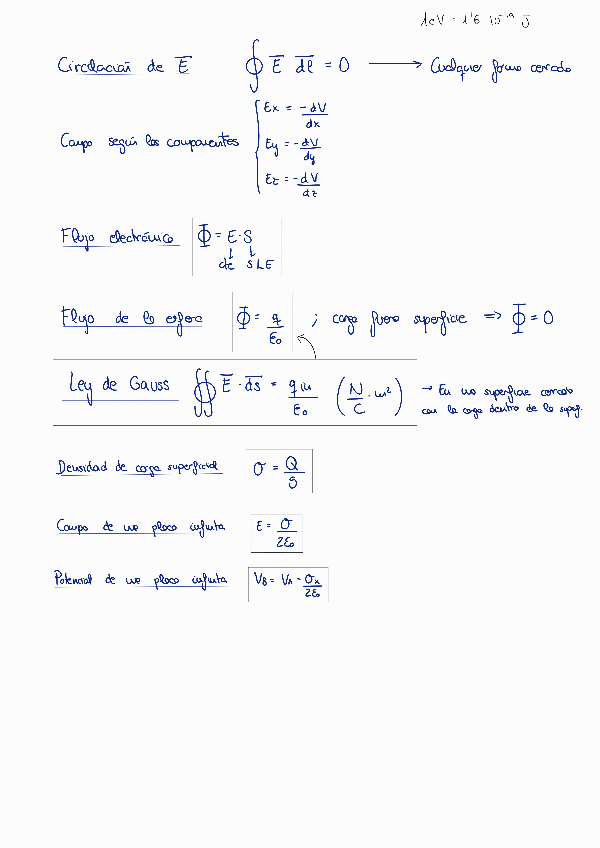 1eV = 1'6 10⁻¹⁹ J
Circulación de E̅ ∮ E̅ d̅l̅ = 0 ⟶ Cualquier forma cerrada
Campo según los componentes { Ex = -dV/dx
Ey = -dV/dy
Ez = -dV/dz
Flujo electrónico Φ = E·S
↓ ↓
de SLE
Flujo de la esfera Φ = q/ε₀ ; carga fuera superficie ⟹ Φ = 0
Ley de Gauss ∯ E̅ · d̅s̅ = q in/ε₀ (N/C · m²) → En una superficie cerrada
con la carga dentro de la superf.
Densidad de carga superficial σ = Q/S
Campo de una placa infinita E = σ/2ε₀
Potencial de una placa infinita V_B = V_A - σx/2ε₀